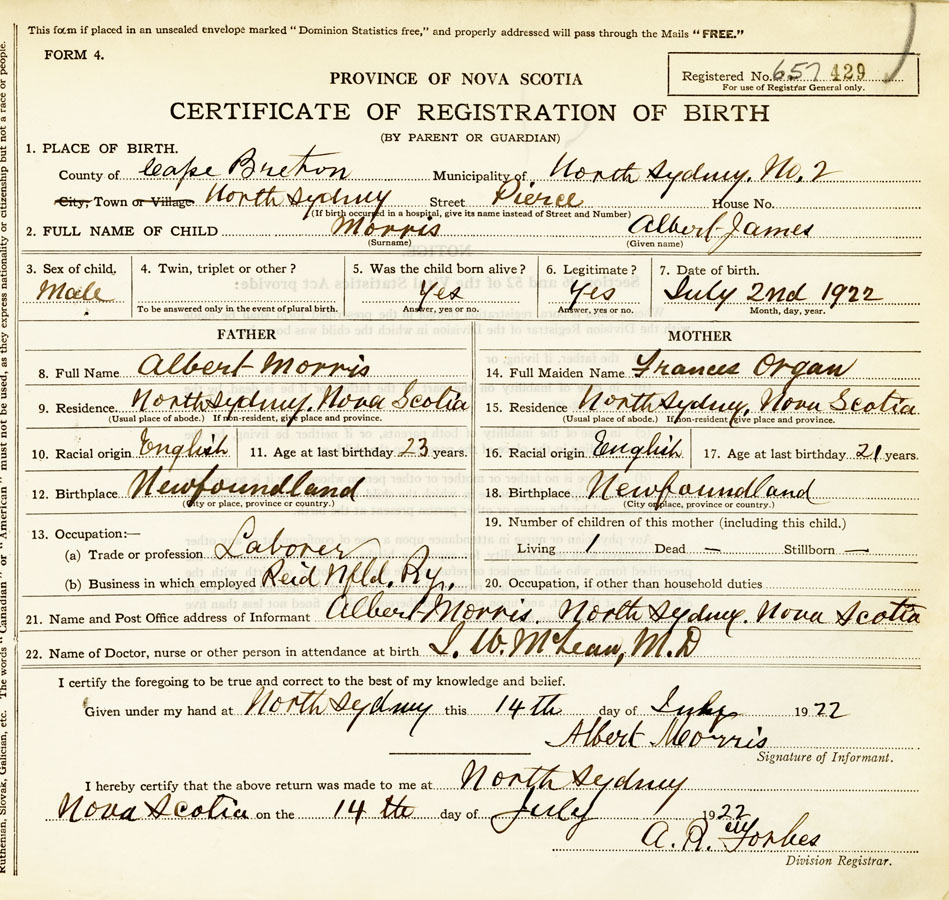 This form if placed in an unsealed envelope marked “Dominion Statistics free,” and properly addressed will pass through the Mails “FREE.”
FORM 4.
Registered No. 657 429
For use of Registrar General only.
PROVINCE OF NOVA SCOTIA
CERTIFICATE OF REGISTRATION OF BIRTH
(BY PARENT OR GUARDIAN)
1. PLACE OF BIRTH.
County of Cape Breton Municipality of North Sydney. No. 2
City, Town or Village North Sydney Street Pierce House No.
(If birth occurred in a hospital, give its name instead of Street and Number)
2. FULL NAME OF CHILD Morris Albert James
(Surname) (Given name)
3. Sex of child. 4. Twin, triplet or other? 5. Was the child born alive? 6. Legitimate? 7. Date of birth.
Male Yes Yes July 2nd 1922
To be answered only in the event of plural birth. Answer, yes or no. Answer, yes or no. Month, day, year.
FATHER MOTHER
8. Full Name Albert Morris 14. Full Maiden Name Frances Organ
9. Residence North Sydney, Nova Scotia 15. Residence North Sydney, Nova Scotia
(Usual place of abode.) If non-resident, give place and province. (Usual place of abode.) If non-resident give place and province.
10. Racial origin English 11. Age at last birthday 23 years. 16. Racial origin English 17. Age at last birthday 21 years.
12. Birthplace Newfoundland 18. Birthplace Newfoundland
(City or place, province or country.) (City or place, province or country.)
13. Occupation:— 19. Number of children of this mother (including this child.)
(a) Trade or profession Laborer Living 1 Dead — Stillborn —
(b) Business in which employed Reid Nfld. Ry. 20. Occupation, if other than household duties
21. Name and Post Office address of Informant Albert Morris. North Sydney. Nova Scotia
22. Name of Doctor, nurse or other person in attendance at birth J. W. McLean, M.D
I certify the foregoing to be true and correct to the best of my knowledge and belief.
Given under my hand at North Sydney this 14th day of July 1922
Albert Morris
Signature of Informant.
I hereby certify that the above return was made to me at North Sydney
Nova Scotia on the 14th day of July 1922
A. R. Forbes
Division Registrar.
Ruthenian, Slovak, Galician, etc. The words “Canadian” or “American” must not be used, as they express nationality or citizenship but not a race or people.